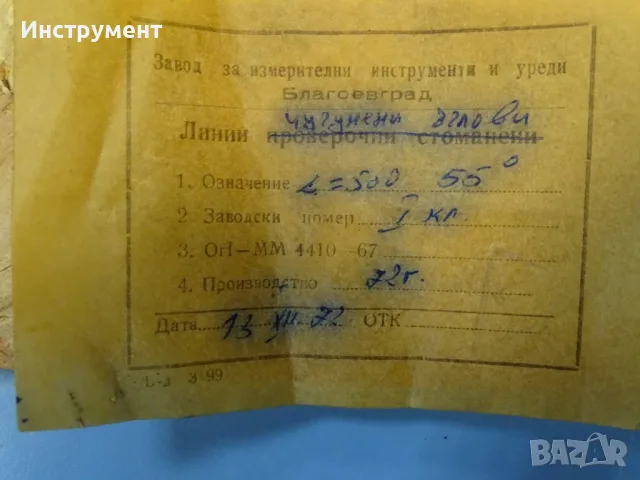 Инструмент
Завод за измерителни инструменти и уреди
Благоевград
чугунени ъглови
Линии проверочни стоманени
1. Означение L=500 55°
2 Заводски номер I кл.
3. ОН—ММ 4410—67
4. Производство 72г.
Дата 13 XII 72 ОТК
3 99
BAZAR